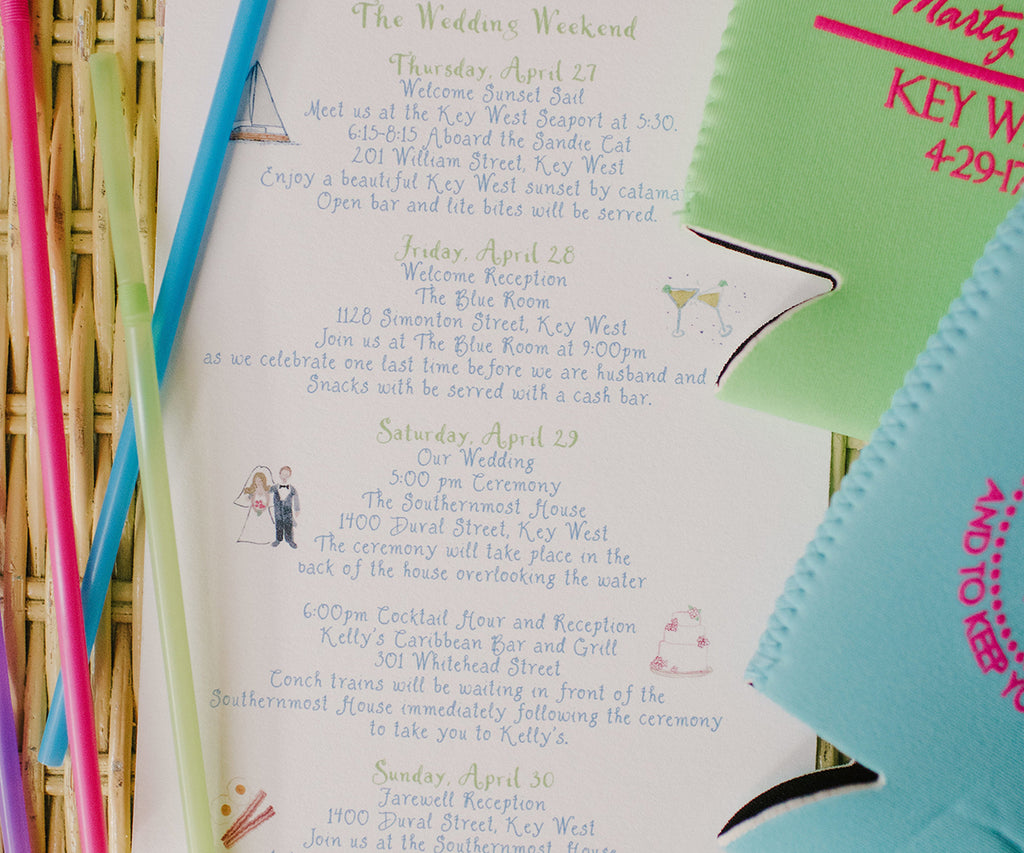 The Wedding Weekend
Thursday, April 27
Welcome Sunset Sail
Meet us at the Key West Seaport at 5:30.
6:15-8:15 Aboard the Sandie Cat
201 William Street, Key West
Enjoy a beautiful Key West sunset by catamar
Open bar and lite bites will be served.
Friday, April 28
Welcome Reception
The Blue Room
1128 Simonton Street, Key West
Join us at The Blue Room at 9:00pm
as we celebrate one last time before we are husband and
Snacks with be served with a cash bar.
Saturday, April 29
Our Wedding
5:00 pm Ceremony
The Southernmost House
1400 Duval Street, Key West
The ceremony will take place in the
back of the house overlooking the water
6:00pm Cocktail Hour and Reception
Kelly's Caribbean Bar and Grill
301 Whitehead Street
Conch trains will be waiting in front of the
Southernmost House immediately following the ceremony
to take you to Kelly's.
Sunday, April 30
Farewell Reception
1400 Duval Street, Key West
Join us at the Southernmost House
Marty
KEY W
4-29-17
AND TO KEEP YO